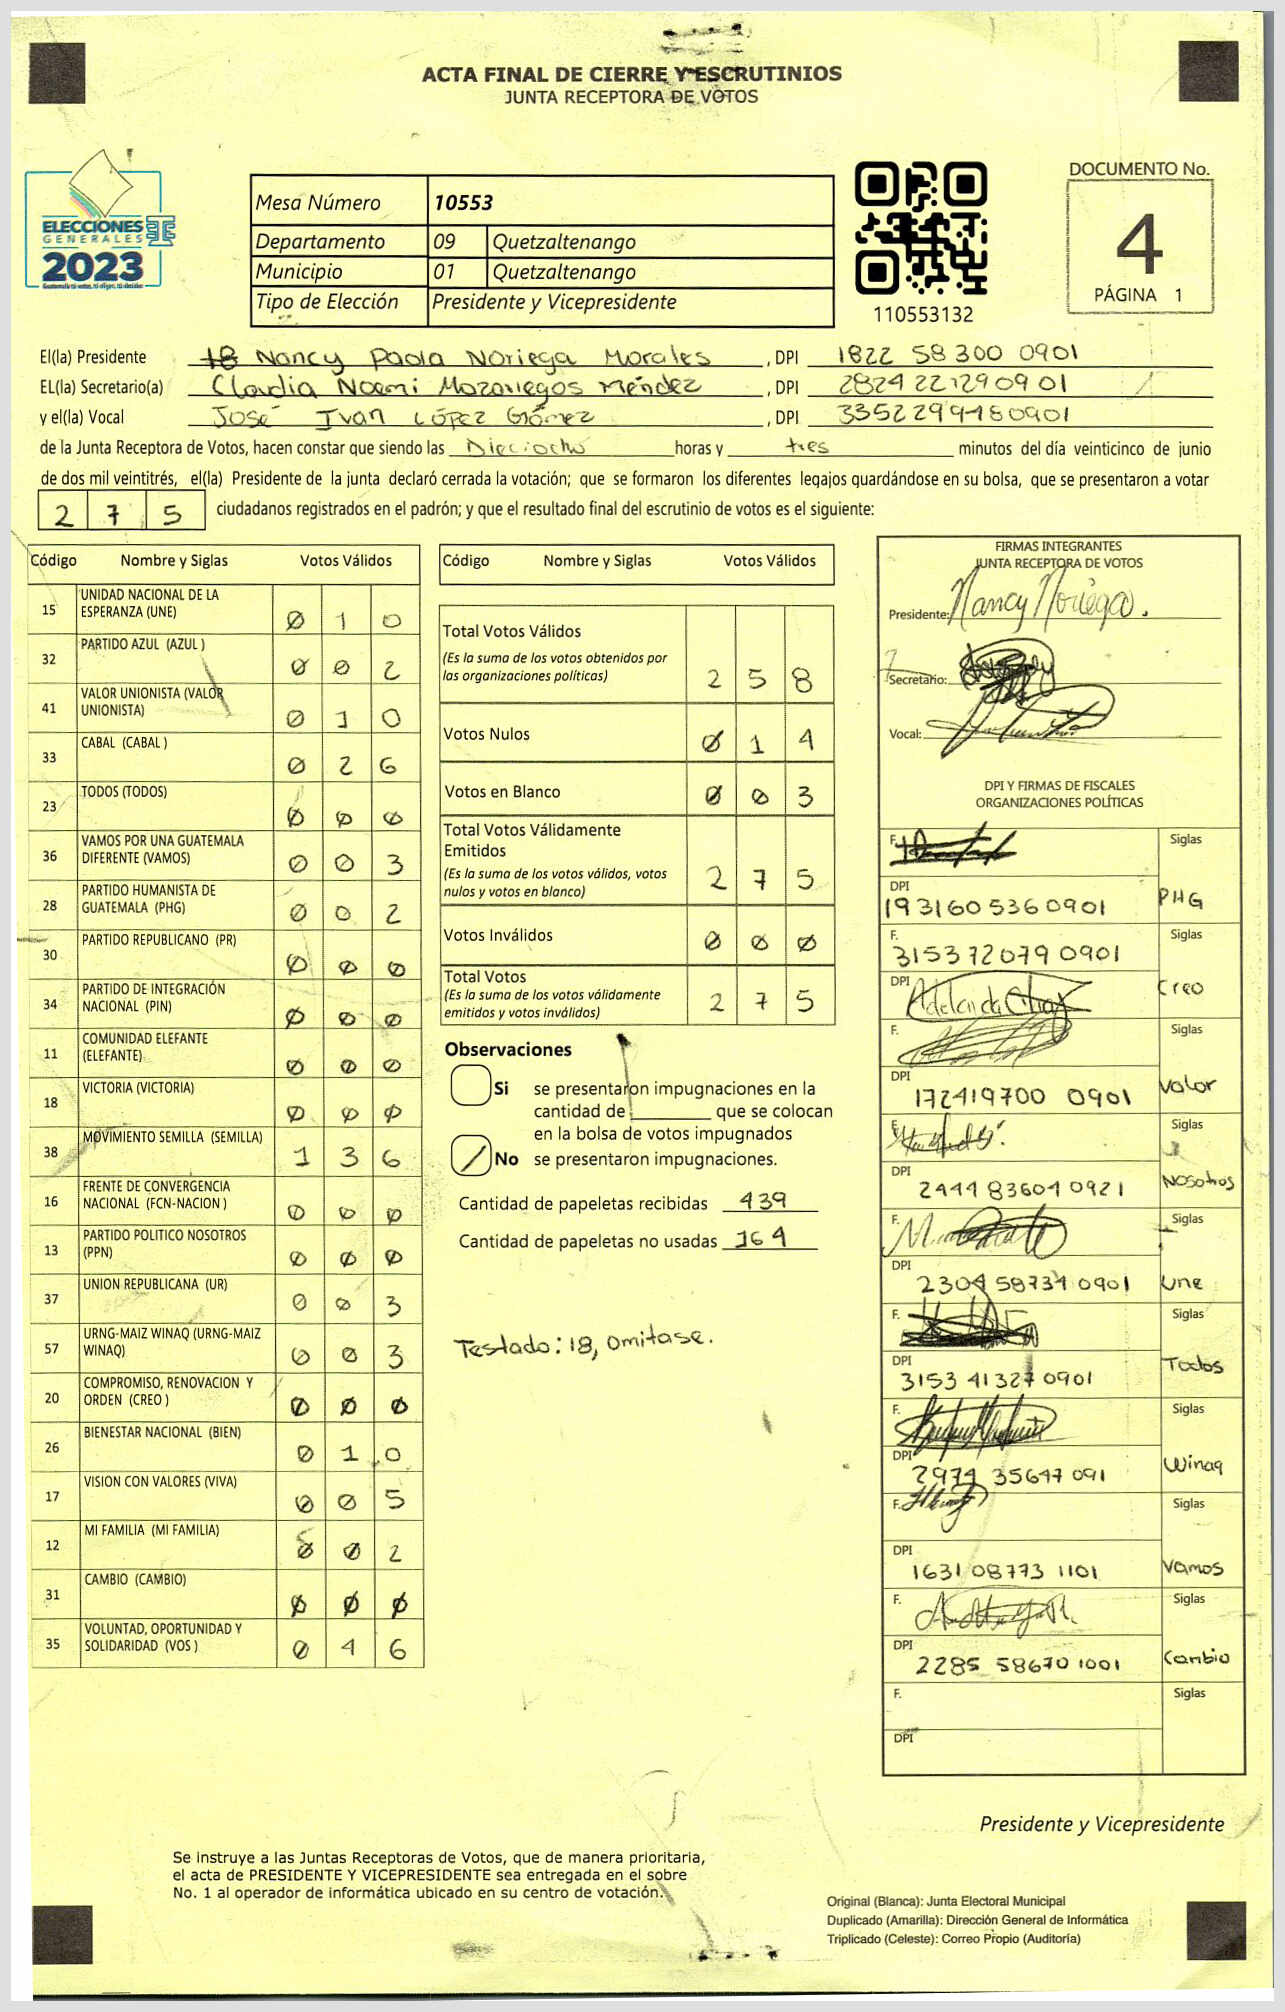 ACTA FINAL DE CIERRE Y ESCRUTINIOS
JUNTA RECEPTORA DE VOTOS
ELECCIONES
GENERALES
2023
Mesa Número 10553
Departamento 09 Quetzaltenango
Municipio 01 Quetzaltenango
Tipo de Elección Presidente y Vicepresidente
110553132
DOCUMENTO No.
4
PÁGINA 1
El(la) Presidente 18 Nancy Paola Noriega Morales , DPI 1822 58 300 0901
EL(la) Secretario(a) Claudia Noemi Mazariegos Méndez , DPI 2824 22129 0901
y el(la) Vocal José Ivan López Gómez , DPI 3352299480901
de la Junta Receptora de Votos, hacen constar que siendo las Dieciocho horas y tres minutos del día veinticinco de junio
de dos mil veintitrés, el(la) Presidente de la junta declaró cerrada la votación; que se formaron los diferentes legajos guardándose en su bolsa, que se presentaron a votar
2 7 5 ciudadanos registrados en el padrón; y que el resultado final del escrutinio de votos es el siguiente:
Código Nombre y Siglas Votos Válidos
15 UNIDAD NACIONAL DE LA ESPERANZA (UNE) 0 1 0
32 PARTIDO AZUL (AZUL ) 0 0 2
41 VALOR UNIONISTA (VALOR UNIONISTA) 0 1 0
33 CABAL (CABAL ) 0 2 6
23 TODOS (TODOS) 0 0 0
36 VAMOS POR UNA GUATEMALA DIFERENTE (VAMOS) 0 0 3
28 PARTIDO HUMANISTA DE GUATEMALA (PHG) 0 0 2
30 PARTIDO REPUBLICANO (PR) 0 0 0
34 PARTIDO DE INTEGRACIÓN NACIONAL (PIN) 0 0 0
11 COMUNIDAD ELEFANTE (ELEFANTE) 0 0 0
18 VICTORIA (VICTORIA) 0 0 0
38 MOVIMIENTO SEMILLA (SEMILLA) 1 3 6
16 FRENTE DE CONVERGENCIA NACIONAL (FCN-NACION ) 0 0 0
13 PARTIDO POLITICO NOSOTROS (PPN) 0 0 0
37 UNION REPUBLICANA (UR) 0 0 3
57 URNG-MAIZ WINAQ (URNG-MAIZ WINAQ) 0 0 3
20 COMPROMISO, RENOVACION Y ORDEN (CREO ) 0 0 0
26 BIENESTAR NACIONAL (BIEN) 0 1 0
17 VISION CON VALORES (VIVA) 0 0 5
12 MI FAMILIA (MI FAMILIA) 0 0 2
31 CAMBIO (CAMBIO) 0 0 0
35 VOLUNTAD, OPORTUNIDAD Y SOLIDARIDAD (VOS ) 0 4 6
Código Nombre y Siglas Votos Válidos
Total Votos Válidos
(Es la suma de los votos obtenidos por
las organizaciones políticas) 2 5 8
Votos Nulos 0 1 4
Votos en Blanco 0 0 3
Total Votos Válidamente
Emitidos
(Es la suma de los votos válidos, votos
nulos y votos en blanco) 2 7 5
Votos Inválidos 0 0 0
Total Votos
(Es la suma de los votos válidamente
emitidos y votos inválidos) 2 7 5
Observaciones
Si se presentaron impugnaciones en la
cantidad de ________ que se colocan
en la bolsa de votos impugnados
No se presentaron impugnaciones.
Cantidad de papeletas recibidas 439
Cantidad de papeletas no usadas 164
Testado: 18, omitase.
FIRMAS INTEGRANTES
JUNTA RECEPTORA DE VOTOS
Presidente: Nancy Noriega.
Secretario:
Vocal:
DPI Y FIRMAS DE FISCALES
ORGANIZACIONES POLÍTICAS
F. Siglas
DPI 1931605360901 PHG
F. 3153 72079 0901 Siglas
DPI Creo
F. Siglas
DPI 172419700 0901 Valor
F. Siglas
DPI 2444 83604 0921 Nosotros
F. Siglas
DPI 2304 58734 0901 Une
F. Siglas
DPI 3153 41327 0901 Todos
F. Siglas
DPI 2974 35647 091 Winaq
F. Siglas
DPI 1631 08773 1101 Vamos
F. Siglas
DPI 2285 58670 1001 Cambio
F. Siglas
DPI
Presidente y Vicepresidente
Se instruye a las Juntas Receptoras de Votos, que de manera prioritaria,
el acta de PRESIDENTE Y VICEPRESIDENTE sea entregada en el sobre
No. 1 al operador de informática ubicado en su centro de votación.
Original (Blanca): Junta Electoral Municipal
Duplicado (Amarilla): Dirección General de Informática
Triplicado (Celeste): Correo Propio (Auditoría)